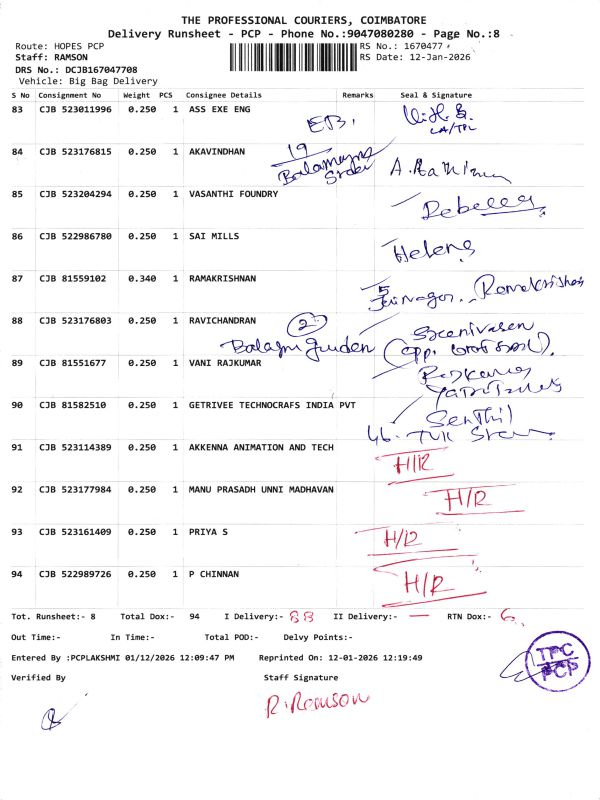 THE PROFESSIONAL COURIERS, COIMBATORE
Delivery Runsheet - PCP - Phone No.:9047080280 - Page No.:8
Route: HOPES PCP RS No.: 1670477
Staff: RAMSON RS Date: 12-Jan-2026
DRS No.: DCJB167047708
Vehicle: Big Bag Delivery
S No Consignment No Weight PCS Consignee Details Remarks Seal & Signature
83 CJB 523011996 0.250 1 ASS EXE ENG EB.
LA/TPL
84 CJB 523176815 0.250 1 AKAVINDHAN 19
85 CJB 523204294 0.250 1 VASANTHI FOUNDRY
86 CJB 522986780 0.250 1 SAI MILLS Helens
87 CJB 81559102 0.340 1 RAMAKRISHNAN Ramakrishnan
88 CJB 523176803 0.250 1 RAVICHANDRAN 2 Sreenivasen
89 CJB 81551677 0.250 1 VANI RAJKUMAR
90 CJB 81582510 0.250 1 GETRIVEE TECHNOCRAFS INDIA PVT Senthil
46. TVK
91 CJB 523114389 0.250 1 AKKENNA ANIMATION AND TECH H/R
92 CJB 523177984 0.250 1 MANU PRASADH UNNI MADHAVAN H/R
93 CJB 523161409 0.250 1 PRIYA S H/R
94 CJB 522989726 0.250 1 P CHINNAN H/R
Tot. Runsheet:- 8 Total Dox:- 94 I Delivery:- 88 II Delivery:- — RTN Dox:- 6
Out Time:- In Time:- Total POD:- Delvy Points:-
Entered By :PCPLAKSHMI 01/12/2026 12:09:47 PM Reprinted On: 12-01-2026 12:19:49
TPC
PCP
Verified By Staff Signature
R. Ramson